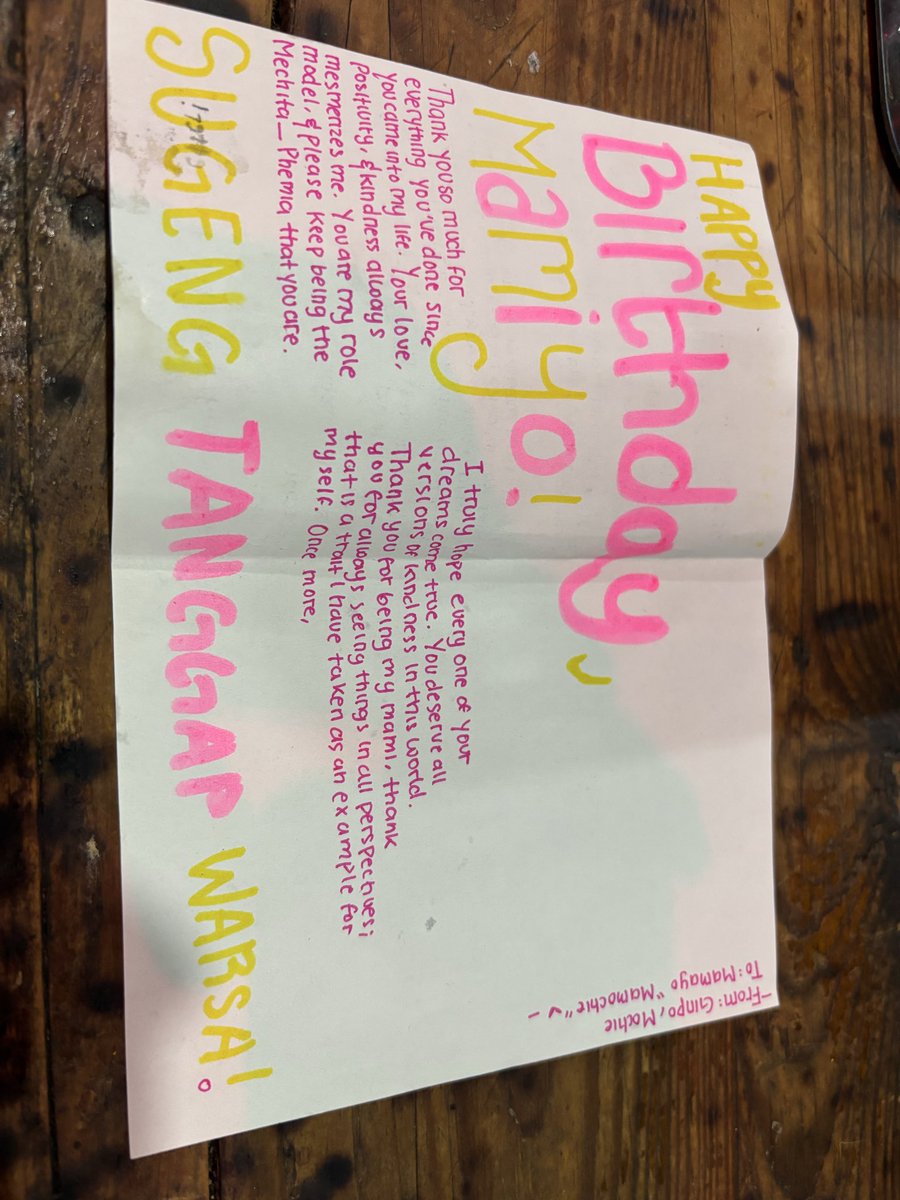 HAPPY
BIrthday,
MamiYo!
Thank you so much for
everything you've done since
you came into my life. Your love,
positivity, & kindness always
mesmerizes me. You are my role
model, & please keep being the
Mechita_Phemia that you are.
I truly hope every one of your
dreams come true. You deserve all
versions of kindness in this world.
Thank you for being my mami, thank
you for always seeing things in all perspectives;
that is a trait I have taken as an example for
myself. Once more,
SUGENG TANGGAP WARSA!
-From: Ginpo, Mochie
To: Mamayo "Mamochie" -